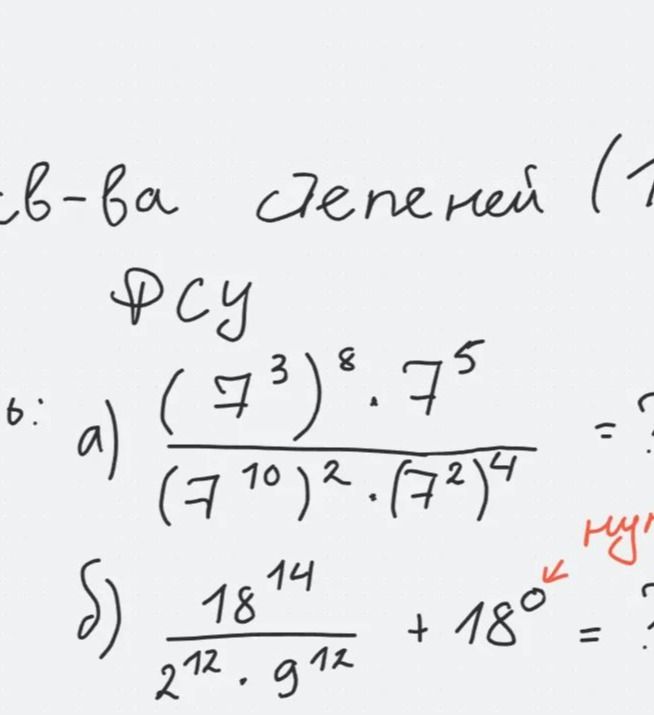 св-ва степеней (1
ФСУ
6:
а) ((7^3)^8 · 7^5) / ((7^10)^2 · (7^2)^4) = ?
нул
б) 18^14 / (2^12 · 9^12) + 18^0 = ?